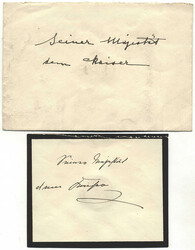 Seiner Majestät
dem Kaiser
Seiner Majestät
dem Kaiser